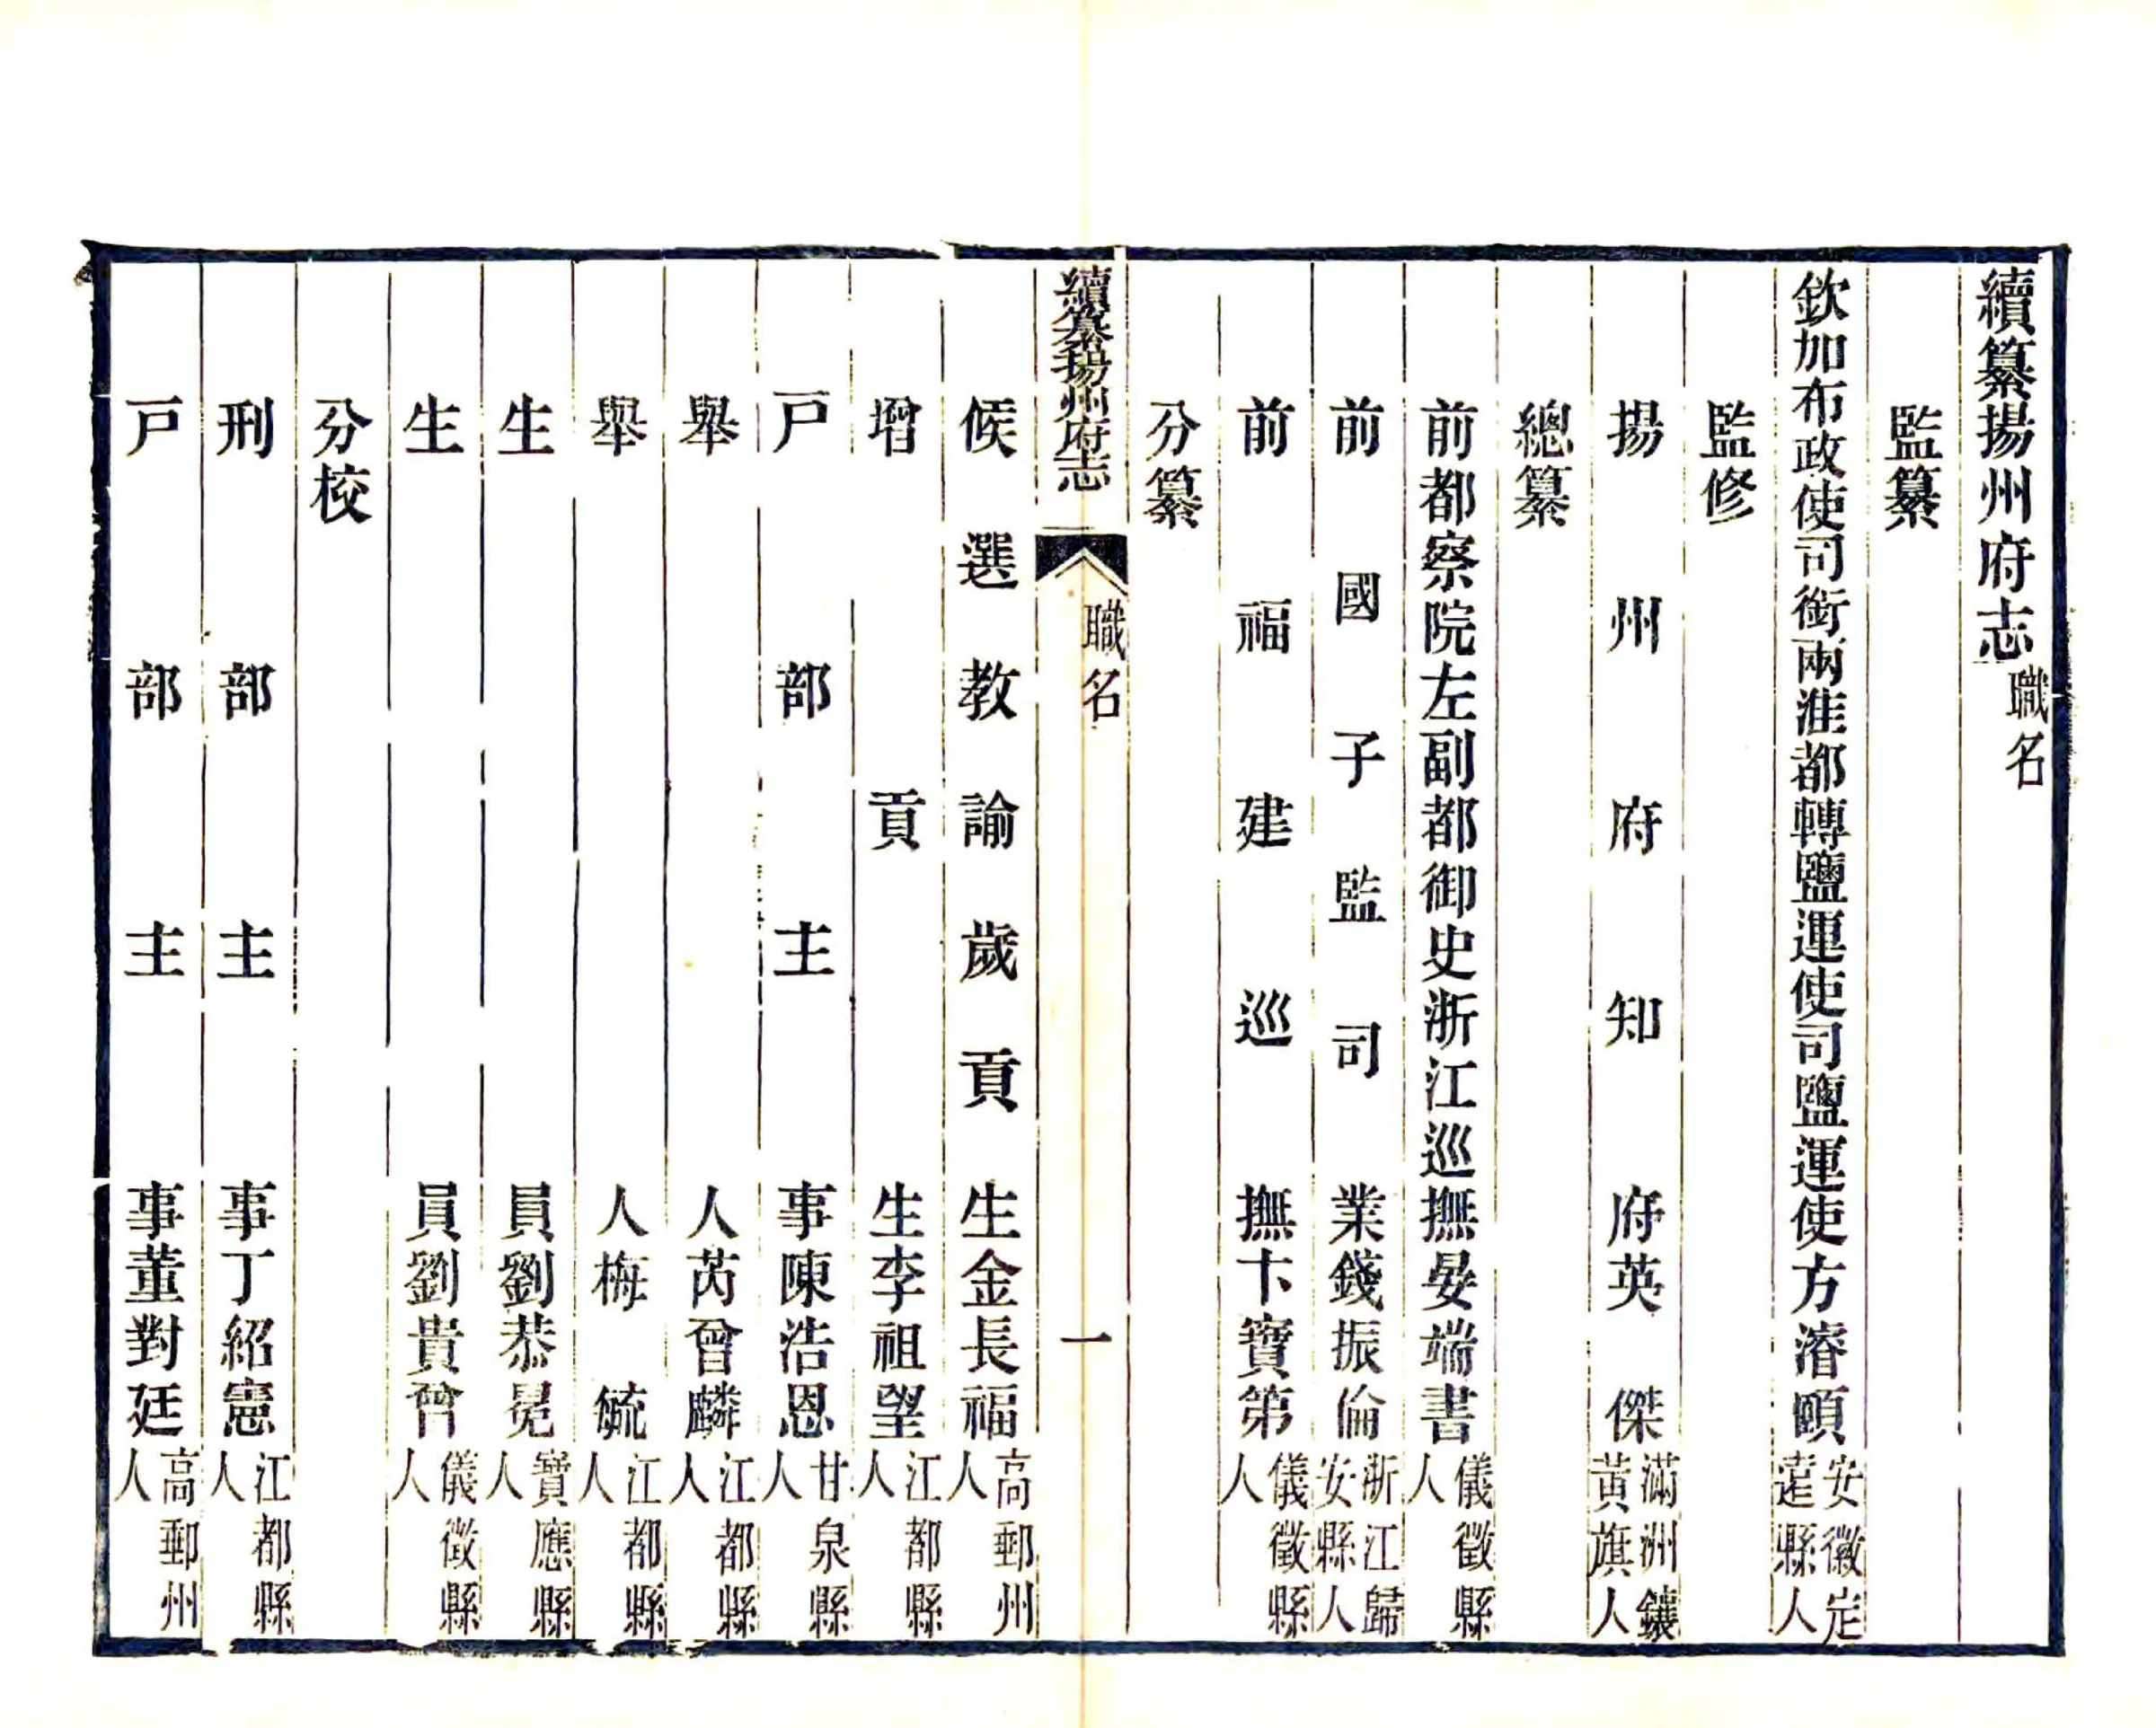 續纂揚州府志職名
監纂
欽加布政使司銜兩淮都轉鹽運使司鹽運使方濬頤安徽定遠縣人
監修
揚州府知府英傑滿洲鑲黃旗人
總纂
前都察院左副都御史浙江巡撫晏端書儀徵縣人
前國子監司業錢振倫浙江歸安縣人
前福建巡撫卞寶第儀徵縣人
分纂
續纂揚州府志 職名 一
候選教諭歲貢生金長福高郵州人
增貢生李祖望江都縣人
戸部主事陳浩恩甘泉縣人
舉人芮曾麟江都縣人
舉人梅毓江都縣人
生員劉恭冕寶應縣人
生員劉貴曾儀徵縣人
分校
刑部主事丁紹憲江都縣人
戸部主事董對廷高郵州人